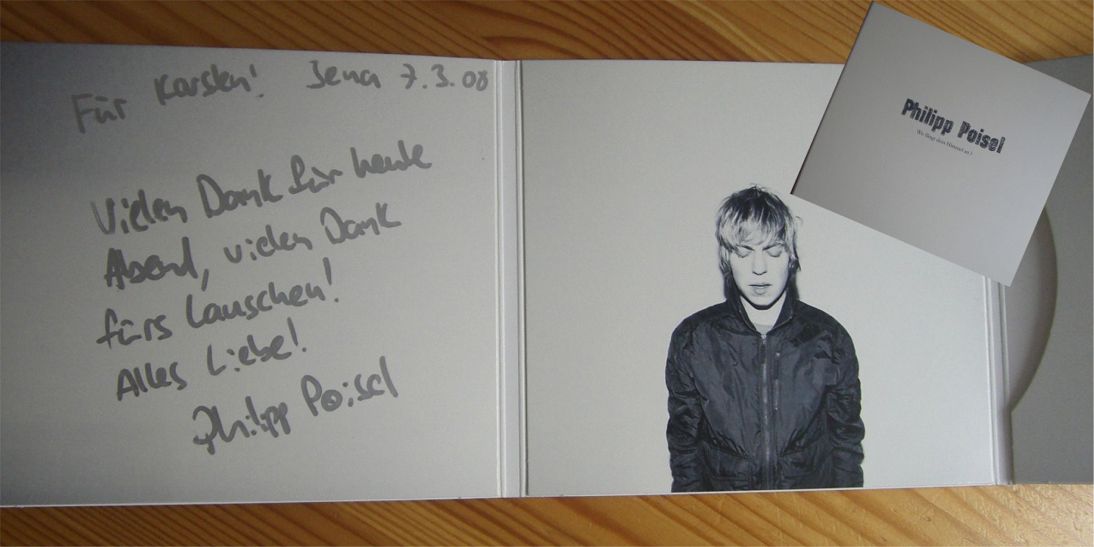 Für Karsten! Jena 7.3.08
Vielen Dank für heute
Abend, vielen Dank
fürs Lauschen!
Alles Liebe!
Philipp Poisel
Philipp Poisel
Wo fängt dein Himmel an?